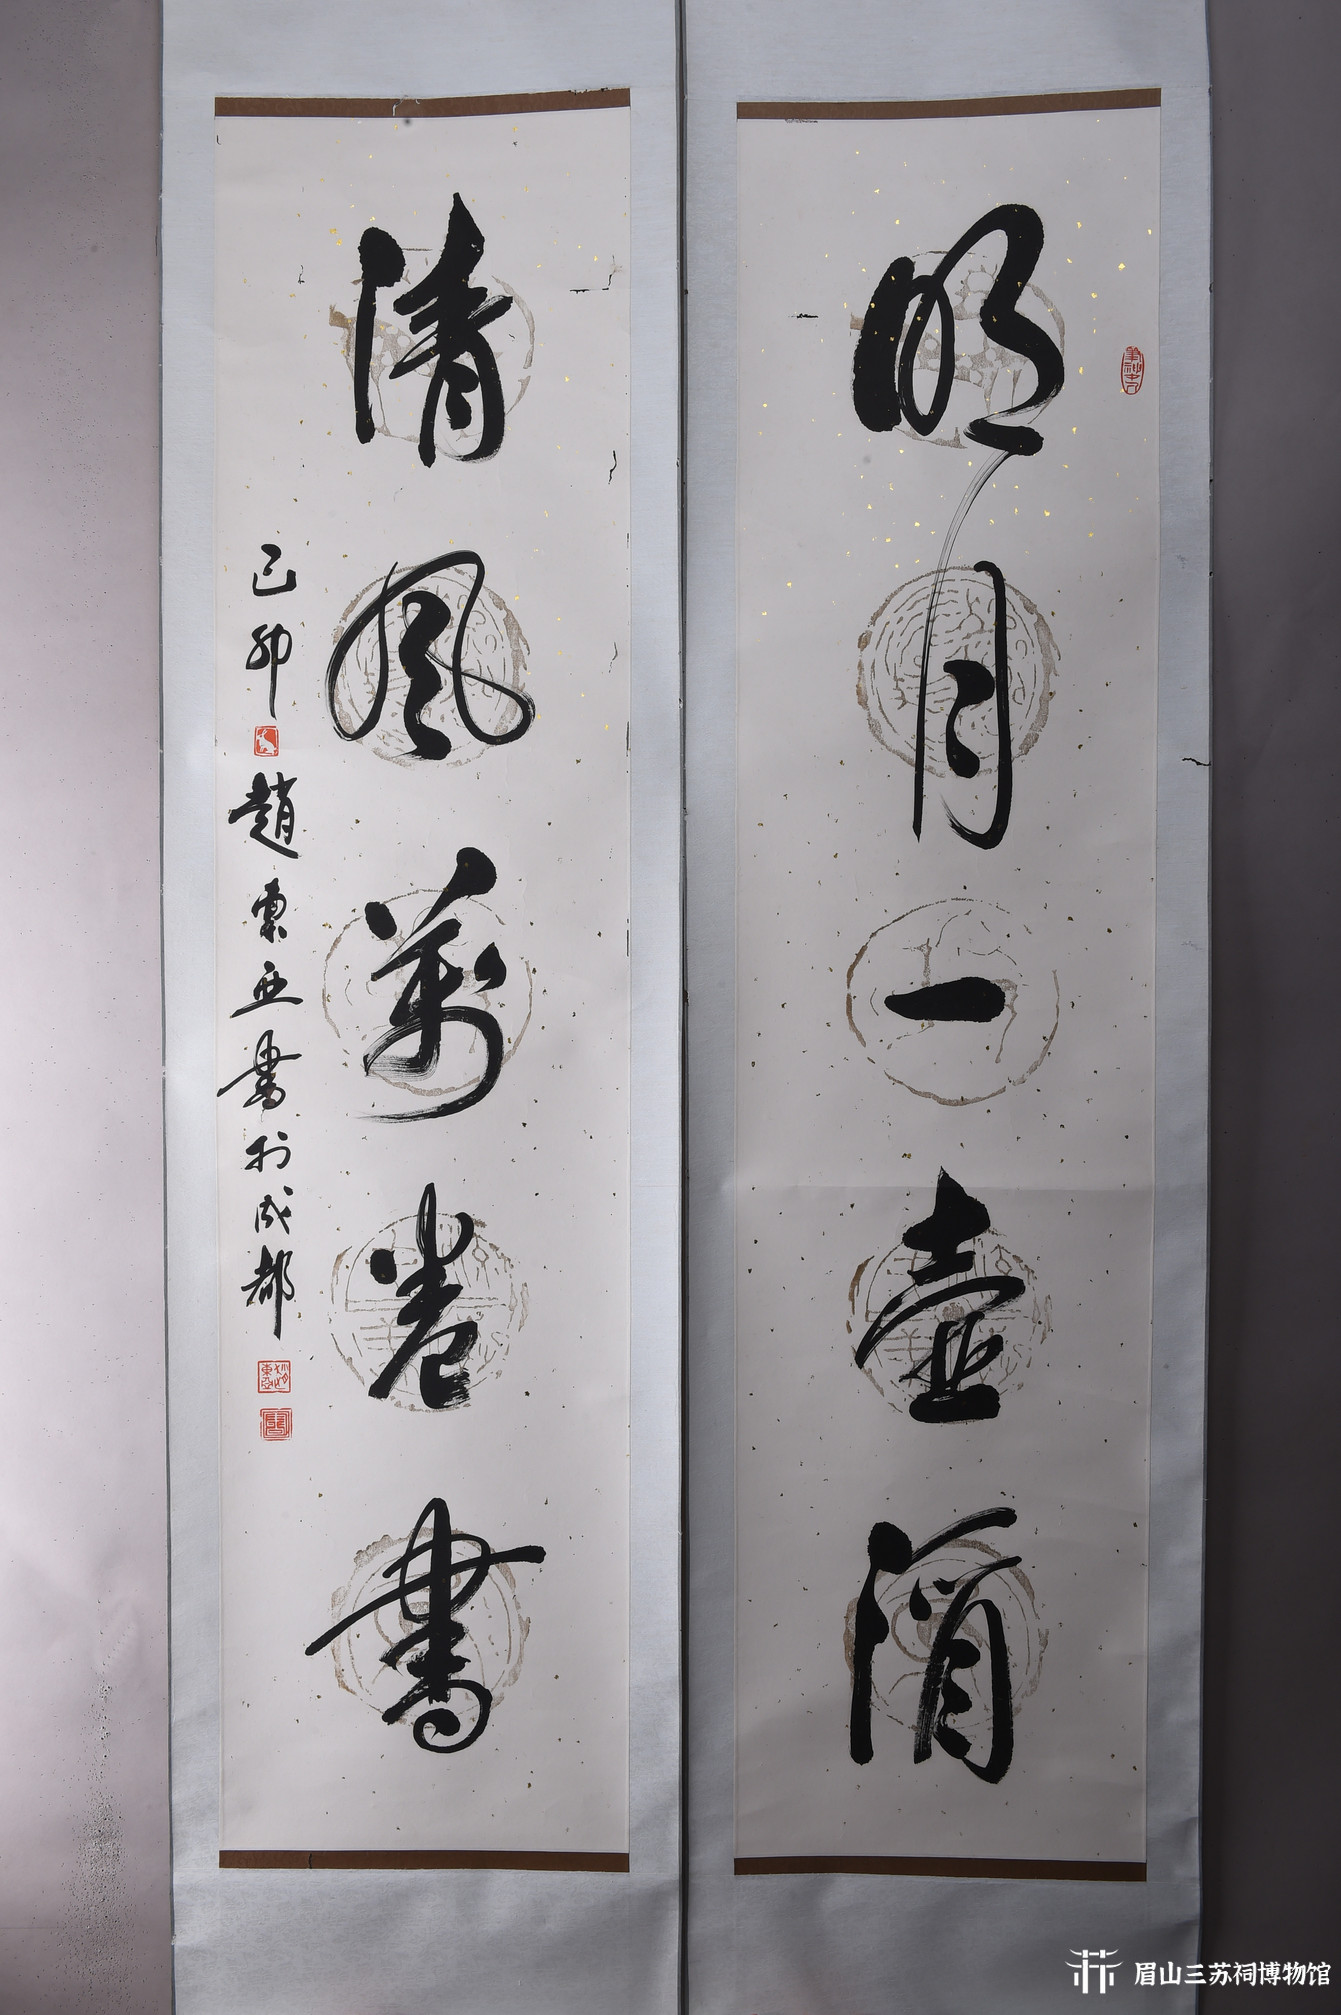 明月一壺酒
清風萬卷書
己卯趙東亞書於成都
眉山三苏祠博物馆